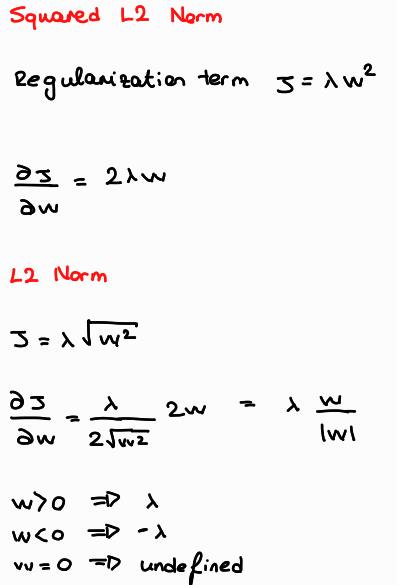 Squared L2 Norm
Regularization term J = λ w²
∂J/∂w = 2λw
L2 Norm
J = λ √w²
∂J/∂w = λ/(2√w²) 2w = λ w/|w|
w>0 ⇒ λ
w<0 ⇒ -λ
w=0 ⇒ undefined